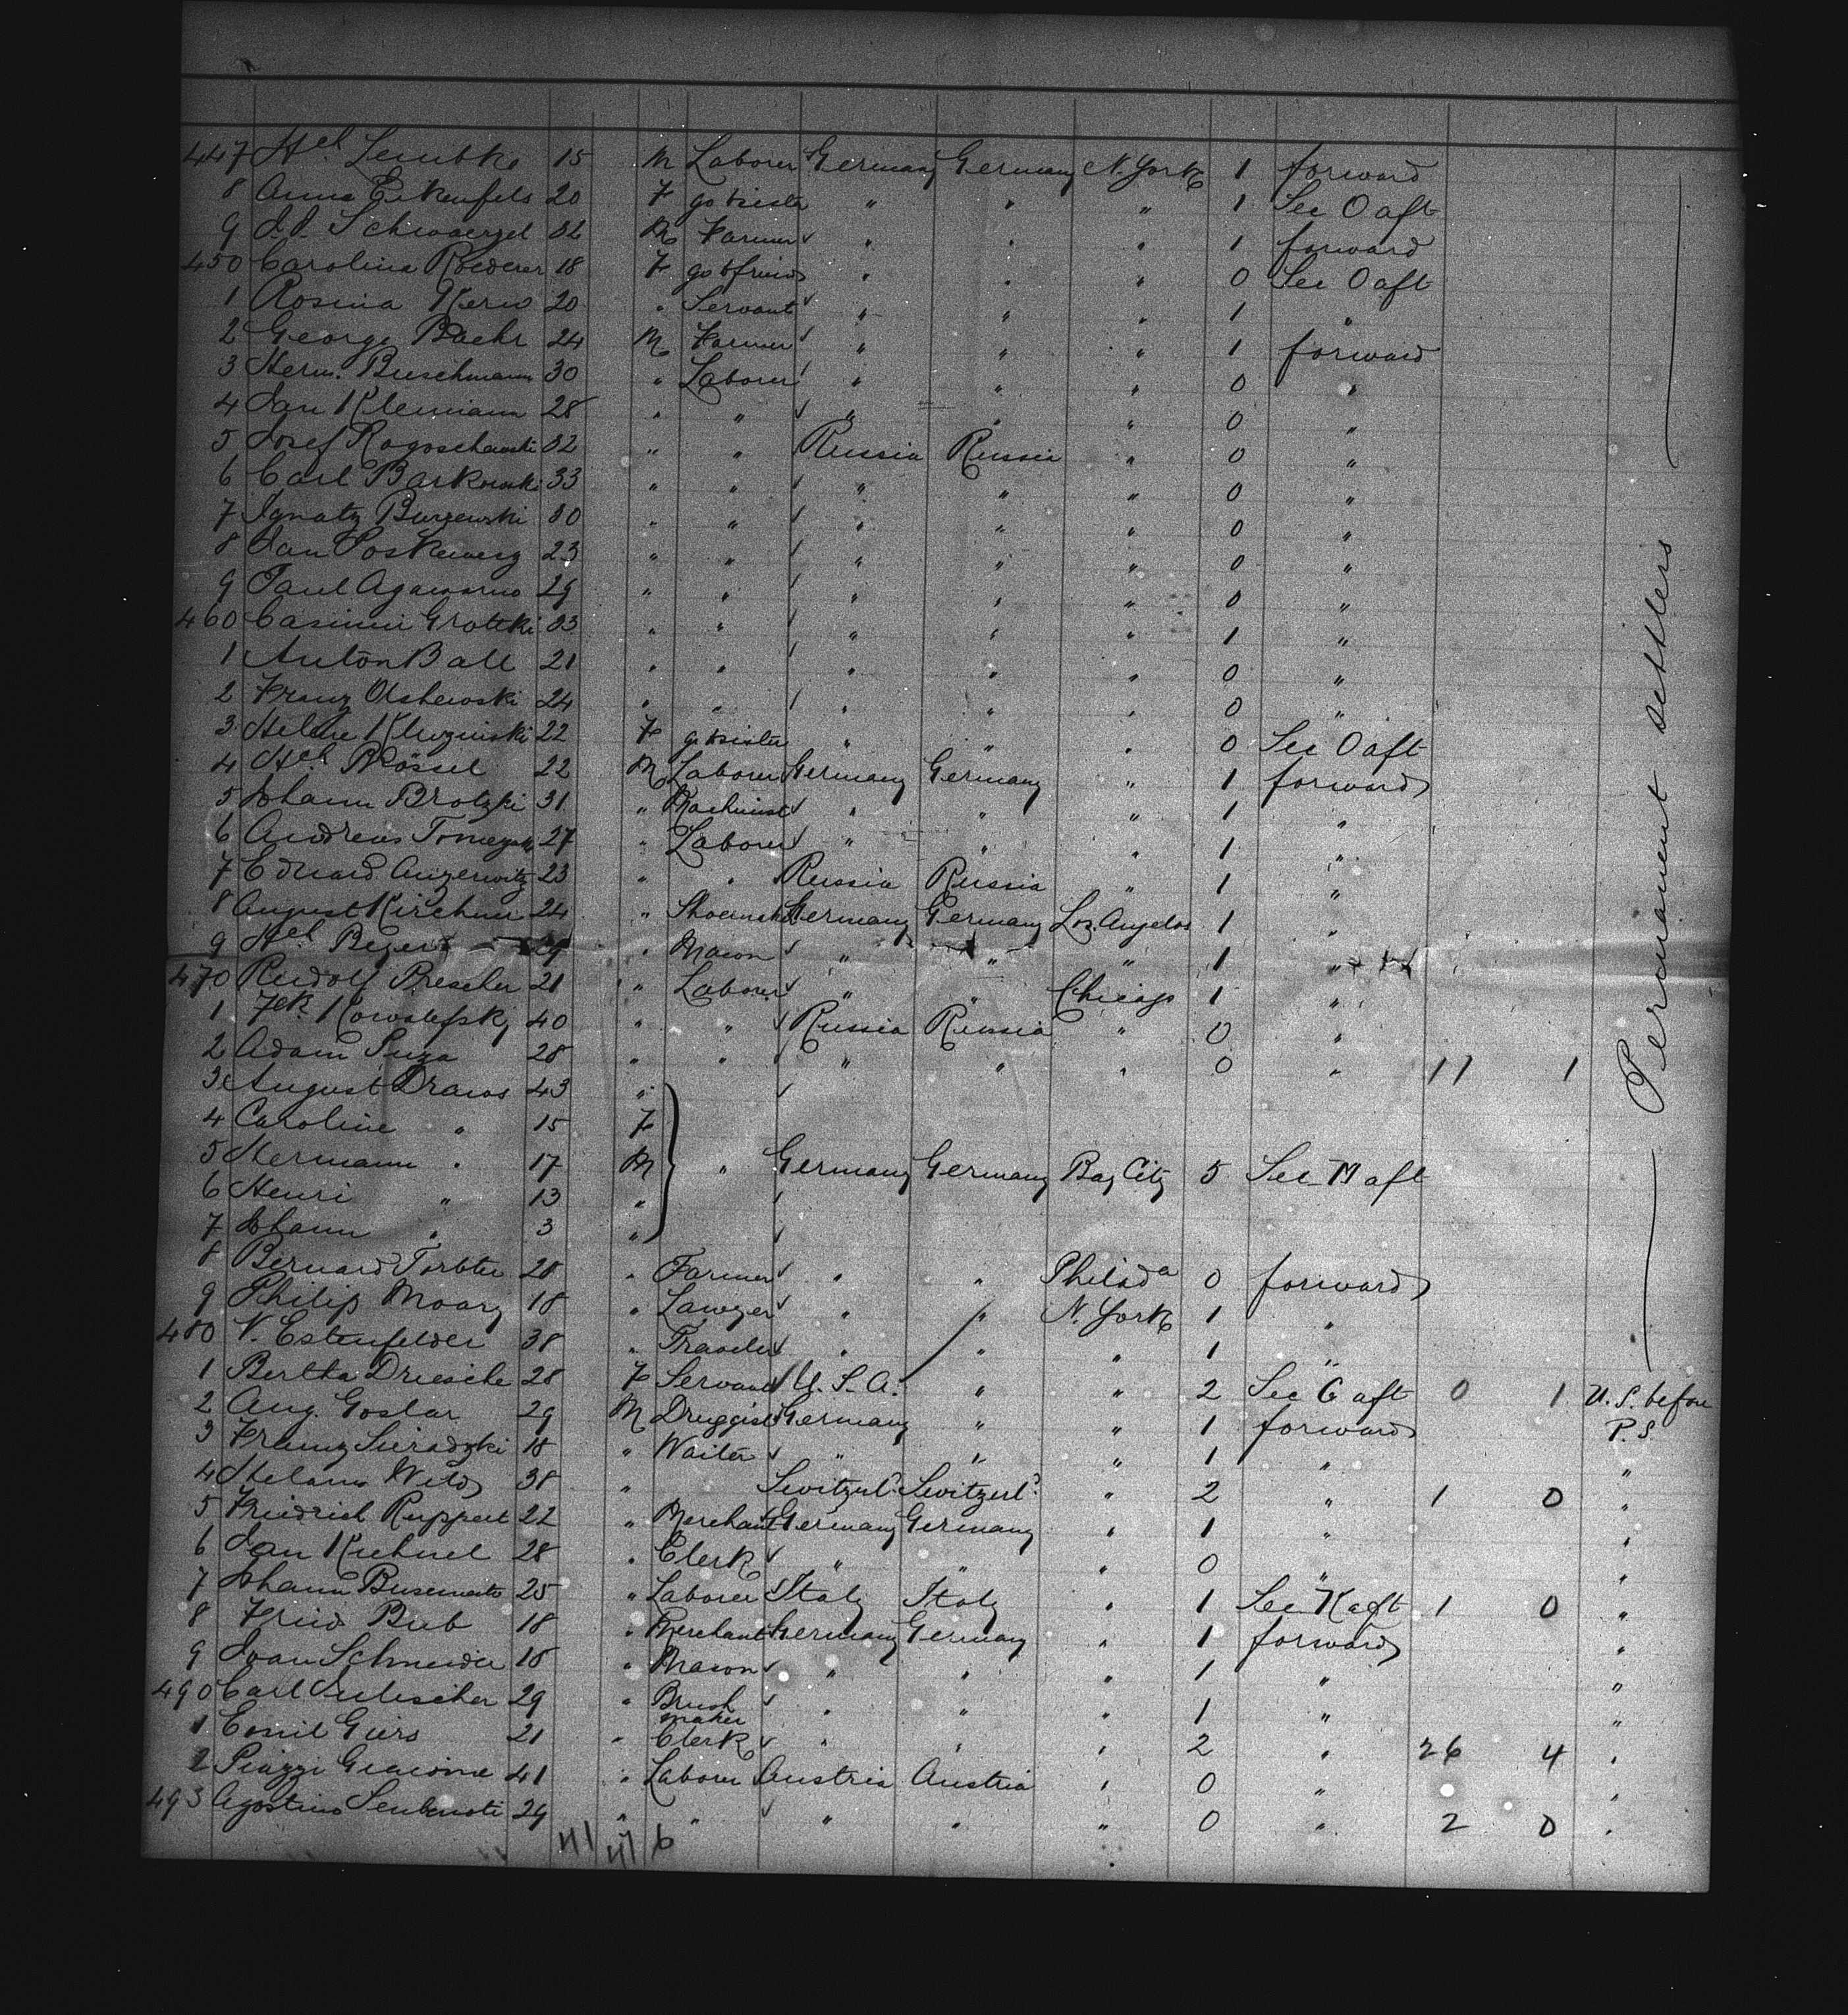 447 Hel Lembke 15 M Laborer Germany Germany N. York 1 forward
8 Anna Eikenfels 20 F go t sister " " " 1 Sec O aft
9 J. J. Schwaerzel 32 M Farmer " " " 1 forward
450 Carolina Roederer 18 F go t friend " " " 0 Sec O aft
1 Rosina Kern 20 " Servant " " " 1 "
2 George Baehr 24 M Farmer " " " 1 forward
3 Herm. Buschmann 30 " Laborer " " " 0 "
4 Jan Klemann 28 " " " " " 0 "
5 Josef 32 " " Russia Russia " 0 "
6 Carl Barkowski 33 " " " " " 0 "
7 Ignatz 30 " " " " " 0 "
8 Jan 23 " " " " " 0 "
9 Paul 29 " " " " " 0 "
460 Casimir Grotzki 33 " " " " " 1 "
1 Anton Ball 21 " " " " " 0 "
2 Franz Olshewski 24 " " " " " 0 "
3 Helene Kluzinski 22 F go t sister " " " 0 Sec O aft
4 Hel Rössel 22 M Laborer Germany Germany " 1 forward
5 Johann Brotzki 31 " Machinist " " " 1 "
6 Andreas 27 " Laborer " " " 1 "
7 Eduard 23 " " Russia Russia " 1 "
8 August Kirchner 24 " Shoemaker Germany Germany Los Angelos 1 "
9 Hel Beyer 29 " Mason " " " 1 "
470 Rudolf Brescher 21 " Laborer " " Chicago 1 "
1 Fek Kowalefsky 40 " " Russia Russia " 0 "
2 Adam Puza 28 " " " " " 0 " 11 1
3 August Draws 43 "
4 Caroline " 15 F
5 Hermann " 17 M " Germany Germany Bay City 5 Sec M aft
6 Henri " 13 "
7 Johann " 3 "
8 Bernard 28 " Farmer " " Philada 0 forward
9 Philip Moary 18 " Lawyer " " N. York 1 "
480 V. Estenfelder 38 " Traveler " " " 1 "
Permanent settlers
1 Bertha Driesche 28 F Servant U. S. A. " " 2 Sec G aft 0 1 U. S. before
2 Aug. Goslar 29 M Druggist Germany " " 1 forward P. S
3 Franz Sieradzki 18 " Waiter " " " 1 " "
4 Wild 38 " Switzerl. Switzerl. " 2 " 1 0 "
5 Friedrich Ruppert 22 " Merchant Germany Germany " 1 " "
6 Jan Kuhnel 28 " Clerk " " " 0 " "
7 Johann 25 " Laborer Italy Italy " 1 Sec K aft 1 0 "
8 Fried Bub 18 " Merchant Germany Germany " 1 forward "
9 Schneider 18 " Mason " " " 1 " "
490 Carl 29 " Brush maker " " " 1 " "
1 Emil Giers 21 " Clerk " " " 2 " 26 4 "
2 Piazzi Giacomo 41 " Laborer Austria Austria " 0 " "
493 Agostino 29 " " " " " 0 " 2 0 "